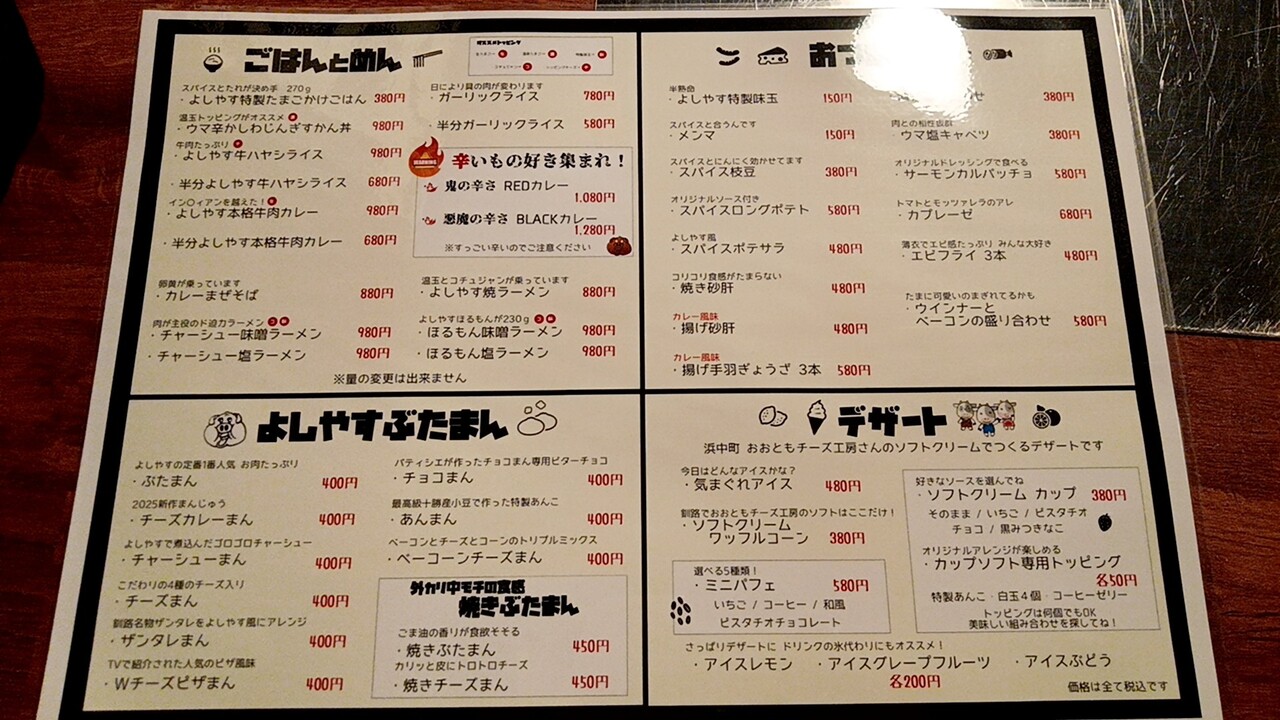 ごはんとめん
オススメトッピング
スパイスとたれが決め手 270g
・よしやす特製たまごかけごはん 380円
温玉トッピングがオススメ
・ウマ辛かしわじんぎすかん丼 980円
牛肉たっぷり
・よしやす牛ハヤシライス 980円
・半分よしやす牛ハヤシライス 680円
イン〇ィアンを越えた！
・よしやす本格牛肉カレー 980円
・半分よしやす本格牛肉カレー 680円
卵黄が乗っています
・カレーまぜそば 880円
肉が主役のド迫力ラーメン
・チャーシュー味噌ラーメン 980円
・チャーシュー塩ラーメン 980円
日により具の肉が変わります
・ガーリックライス 780円
・半分ガーリックライス 580円
WARNING
辛いもの好き集まれ！
鬼の辛さ REDカレー
1,080円
悪魔の辛さ BLACKカレー
1,280円
※すっごい辛いのでご注意ください
温玉とコチュジャンが乗っています
・よしやす焼ラーメン 880円
よしやすほるもんが230g
・ほるもん味噌ラーメン 980円
・ほるもん塩ラーメン 980円
※量の変更は出来ません
お
半熟命
・よしやす特製味玉 150円
スパイスと合うんです
・メンマ 150円
スパイスとにんにく効かせてます
・スパイス枝豆 380円
オリジナルソース付き
・スパイスロングポテト 580円
よしやす風
・スパイスポテサラ 480円
コリコリ食感がたまらない
・焼き砂肝 480円
カレー風味
・揚げ砂肝 480円
カレー風味
・揚げ手羽ぎょうざ 3本 580円
380円
肉との相性抜群
・ウマ塩キャベツ 380円
オリジナルドレッシングで食べる
・サーモンカルパッチョ 580円
トマトとモッツァレラのアレ
・カプレーゼ 680円
薄衣でエビ感たっぷり みんな大好き
・エビフライ 3本 480円
たまに可愛いのまぎれてるかも
・ウインナーと
ベーコンの盛り合わせ 580円
よしやすぶたまん
よしやすの定番1番人気 お肉たっぷり
・ぶたまん 400円
2025新作まんじゅう
・チーズカレーまん 400円
よしやすで煮込んだゴロゴロチャーシュー
・チャーシューまん 400円
こだわりの4種のチーズ入り
・チーズまん 400円
釧路名物ザンタレをよしやす風にアレンジ
・ザンタレまん 400円
TVで紹介された人気のピザ風味
・Wチーズピザまん 400円
パティシエが作ったチョコまん専用ビターチョコ
・チョコまん 400円
最高級十勝産小豆で作った特製あんこ
・あんまん 400円
ベーコンとチーズとコーンのトリプルミックス
・ベーコーンチーズまん 400円
外カリ中モチの食感
焼きぶたまん
ごま油の香りが食欲そそる
・焼きぶたまん 450円
カリッと皮にトロトロチーズ
・焼きチーズまん 450円
デザート
浜中町 おおともチーズ工房さんのソフトクリームでつくるデザートです
今日はどんなアイスかな？
・気まぐれアイス 480円
釧路でおおともチーズ工房のソフトはここだけ！
・ソフトクリーム
ワッフルコーン 380円
選べる5種類！
・ミニパフェ 580円
いちご / コーヒー / 和風
ピスタチオチョコレート
好きなソースを選んでね
・ソフトクリーム カップ 380円
そのまま / いちご / ピスタチオ
チョコ / 黒みつきなこ
オリジナルアレンジが楽しめる
・カップソフト専用トッピング
各50円
特製あんこ・白玉4個・コーヒーゼリー
トッピングは何個でもOK
美味しい組み合わせを探してね！
さっぱりデザートに ドリンクの氷代わりにもオススメ！
・アイスレモン ・アイスグレープフルーツ ・アイスぶどう
各200円
価格は全て税込です